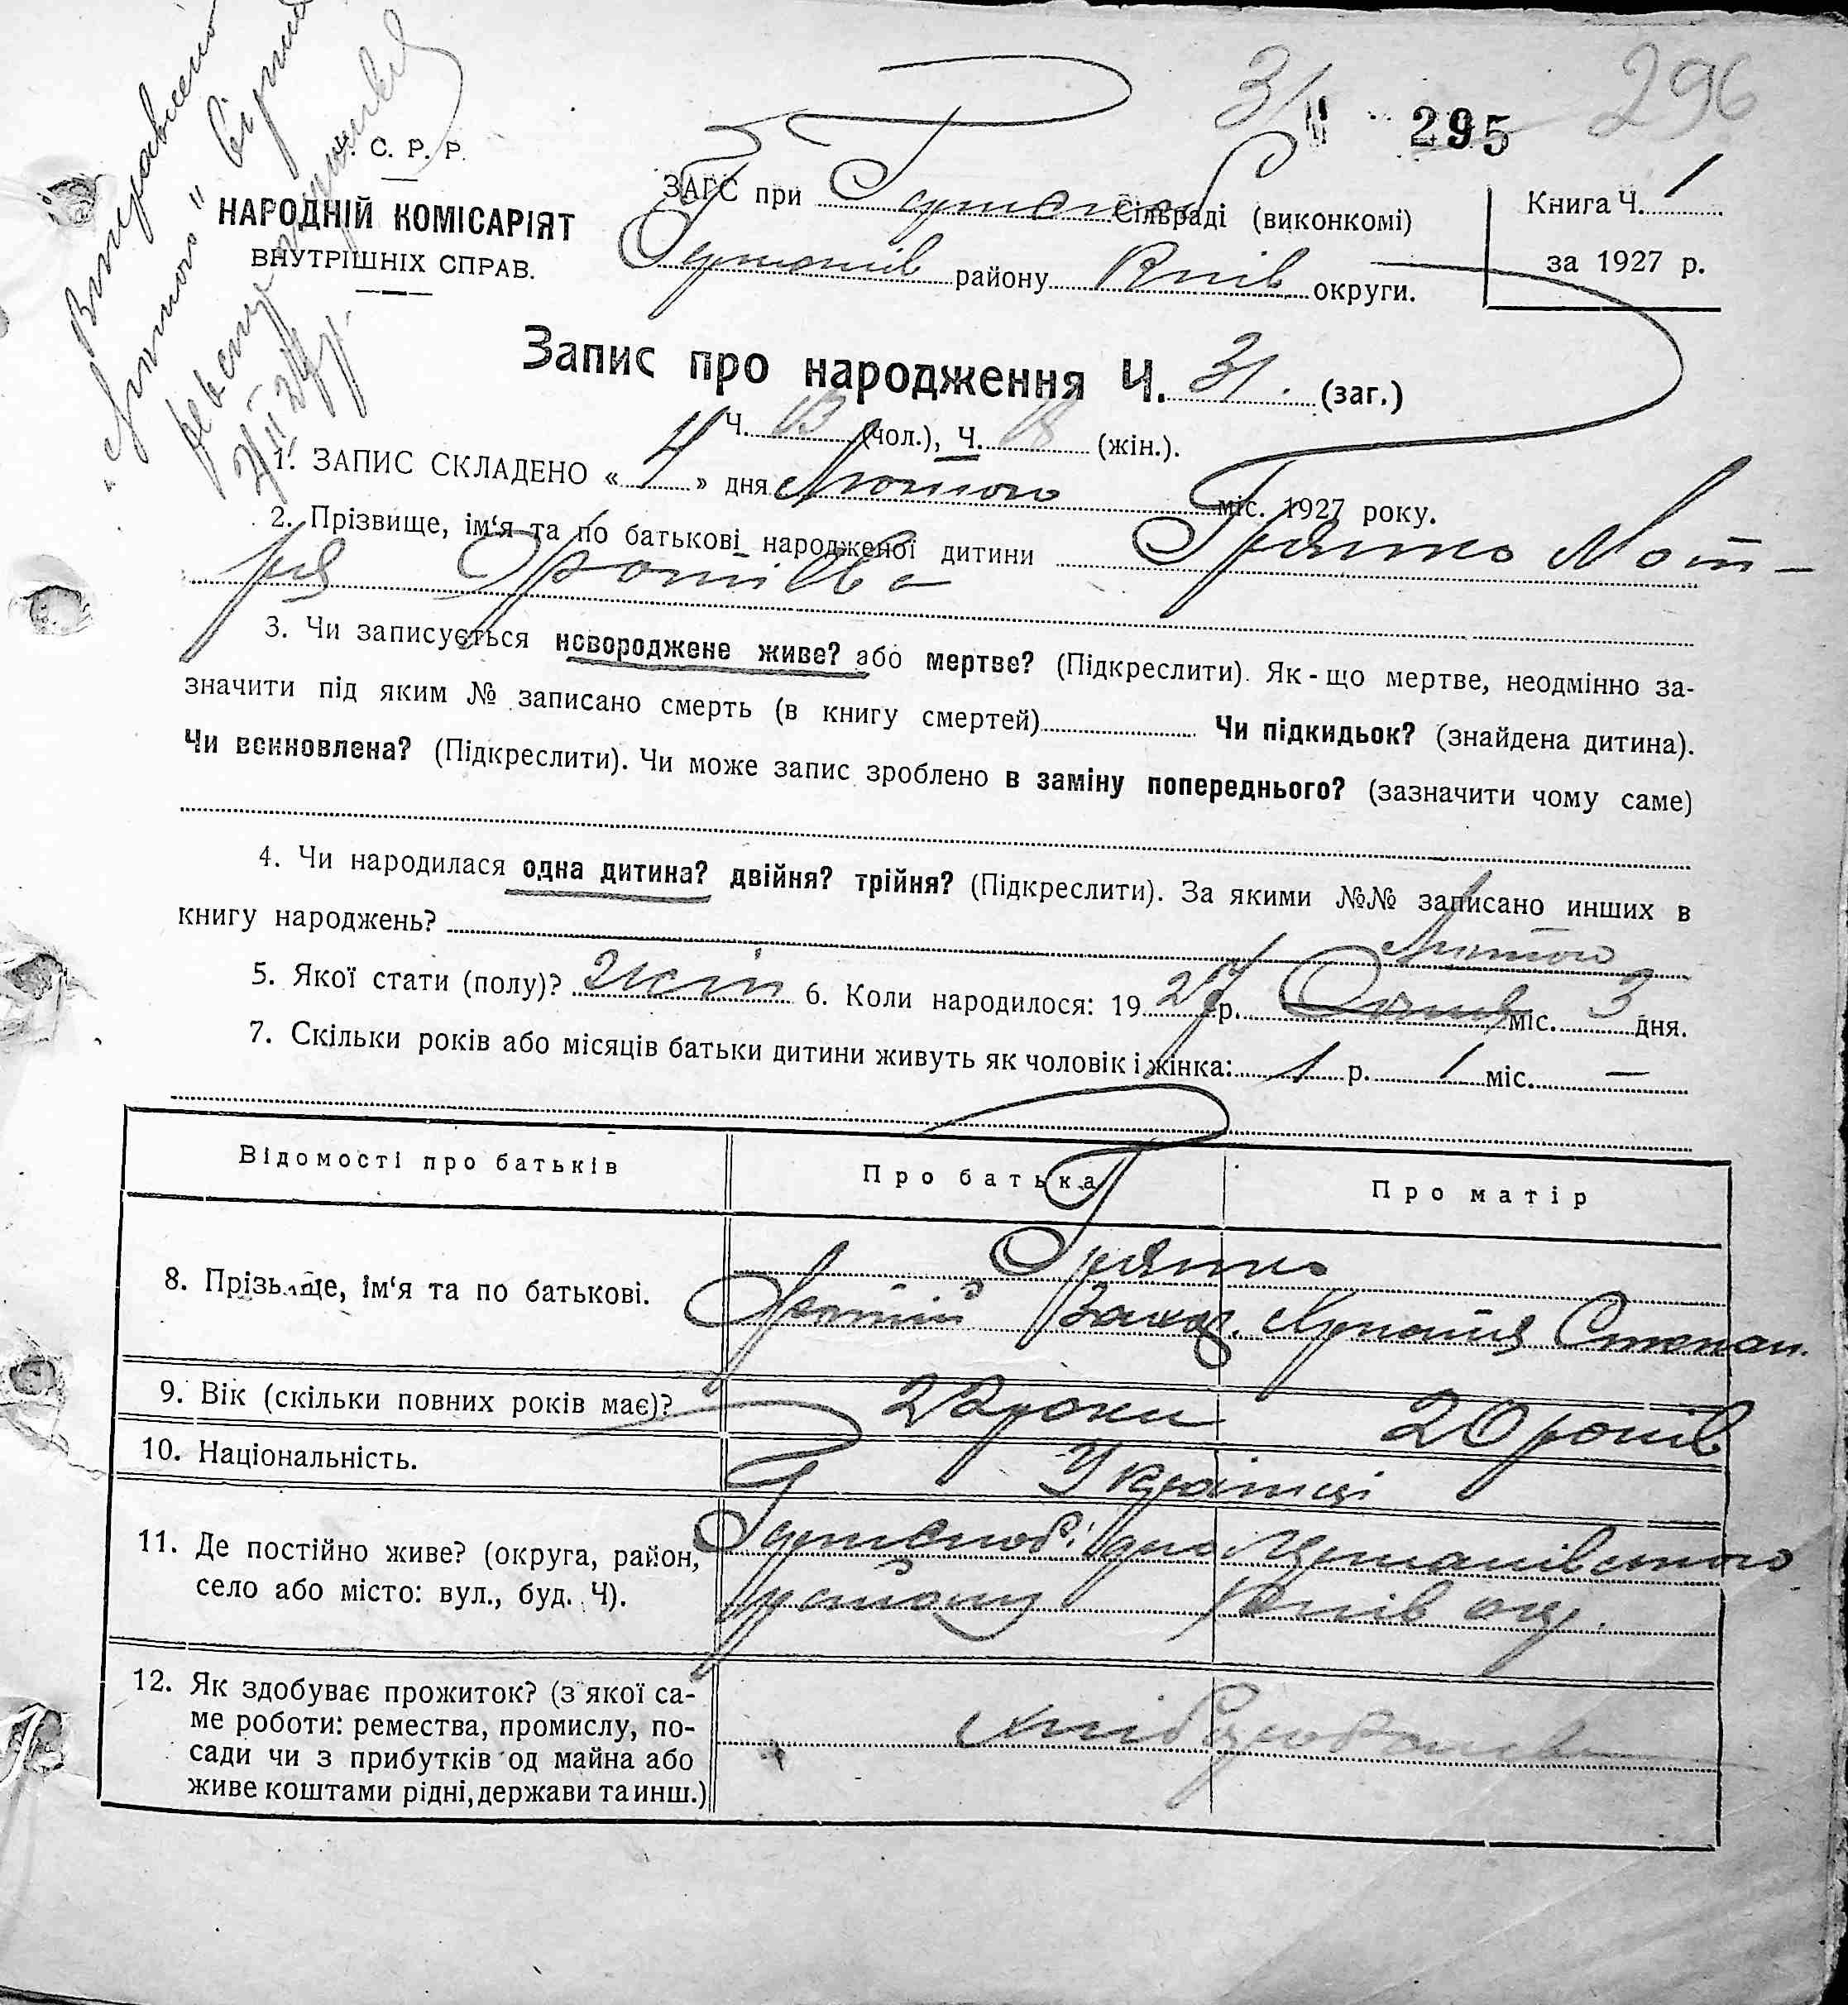 31 295 296
Виправлено
"Лютого" Вірно
2/II 27 р.
У. С. Р. Р.
НАРОДНІЙ КОМІСАРІЯТ
ВНУТРІШНІХ СПРАВ.
ЗАГС при Сільраді (виконкомі)
району Київ округи.
Книга Ч. 1
за 1927 р.
Запис про народження Ч. 31. (заг.)
Ч. 13 (чол.), Ч. 18 (жін.).
1. ЗАПИС СКЛАДЕНО « 4 » дня Лютого міс. 1927 року.
2. Прізвище, ім'я та по батькові народженої дитини Гряшко Мот-
ря Фотіівна
3. Чи записується новороджене живе? або мертве? (Підкреслити). Як-що мертве, неодмінно за-
значити під яким № записано смерть (в книгу смертей) Чи підкидьок? (знайдена дитина).
Чи всиновлена? (Підкреслити). Чи може запис зроблено в заміну попереднього? (зазначити чому саме)
4. Чи народилася одна дитина? двійня? трійня? (Підкреслити). За якими №№ записано инших в
книгу народжень?
Лютого
5. Якої стати (полу)? жін 6. Коли народилося: 1927 р. міс. 3 дня.
7. Скільки років або місяців батьки дитини живуть як чоловік і жінка: 1 р. 1 міс. —
Відомості про батьків Про батька Про матір
8. Прізвище, ім'я та по батькові.
Гряшко
Фотій Захар. Степан.
9. Вік (скільки повних років має)? 22 роки 20 років
10. Національність. Українці
11. Де постійно живе? (округа, район,
село або місто: вул., буд. Ч).
району Київ окр.
12. Як здобуває прожиток? (з якої са-
ме роботи: ремества, промислу, по-
сади чи з прибутків од майна або
живе коштами рідні, держави та инш.)
хліборобство